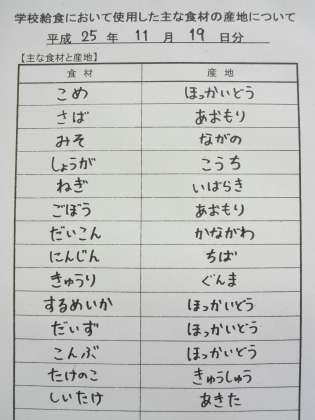 学校給食において使用した主な食材の産地について
平成 25 年 11 月 19 日分
【主な食材と産地】
食材 産地
こめ ほっかいどう
さば あおもり
みそ ながの
しょうが こうち
ねぎ いばらき
ごぼう あおもり
だいこん かながわ
にんじん ちば
きゅうり ぐんま
するめいか ほっかいどう
だいず ほっかいどう
こんぶ ほっかいどう
たけのこ きゅうしゅう
しいたけ あきた